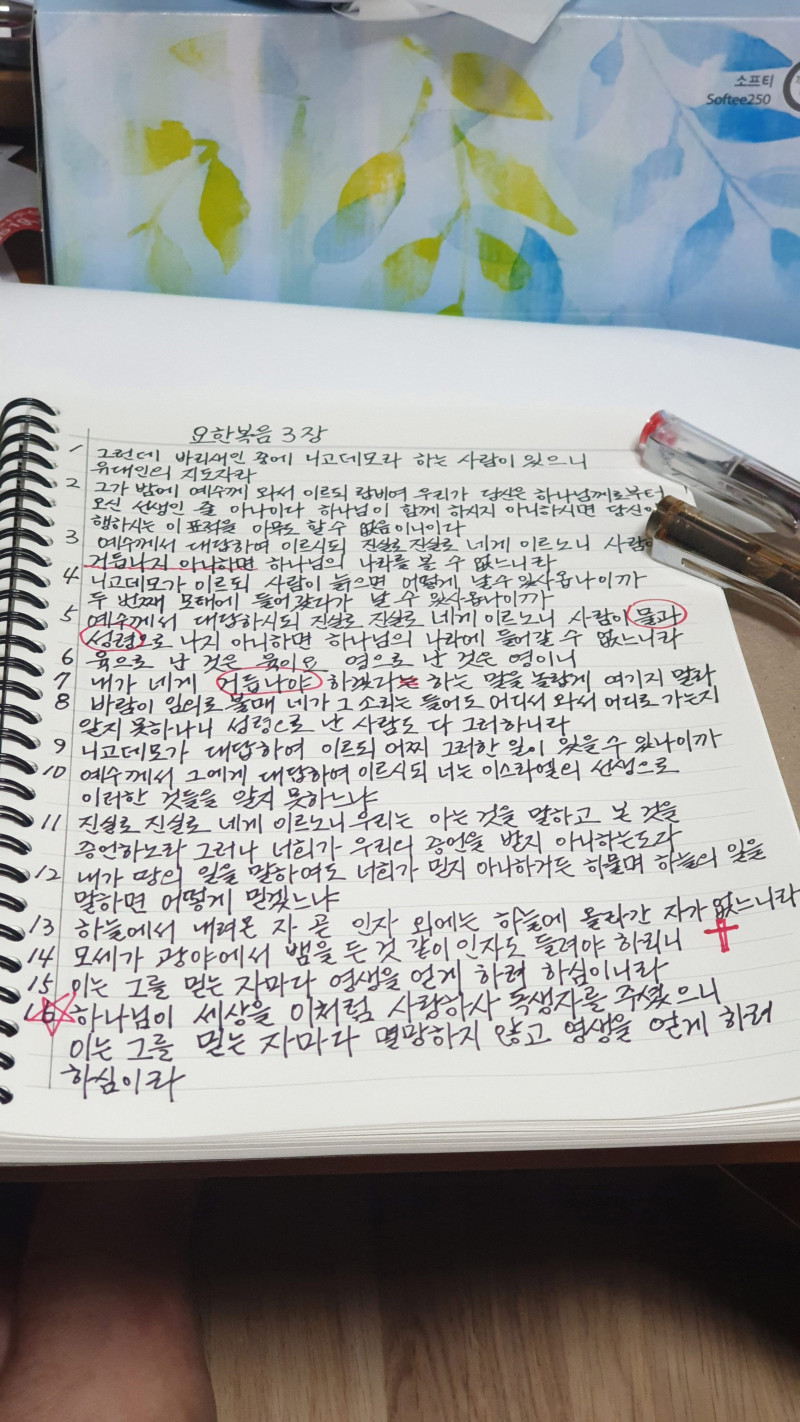 소프티
Softee250
요한복음 3장
1 그런데 바리새인 중에 니고데모라 하는 사람이 있으니
유대인의 지도자라
2 그가 밤에 예수께 와서 이르되 랍비여 우리가 당신은 하나님께로부터
오신 선생인 줄 아나이다 하나님이 함께 하시지 아니하시면 당신이
행하시는 이 표적을 아무도 할 수 없음이니이다
3 예수께서 대답하여 이르시되 진실로 진실로 네게 이르노니 사람이
거듭나지 아니하면 하나님의 나라를 볼 수 없느니라
4 니고데모가 이르되 사람이 늙으면 어떻게 날 수 있사옵나이까
두 번째 모태에 들어갔다가 날 수 있사옵나이까
5 예수께서 대답하시되 진실로 진실로 네게 이르노니 사람이 물과
성령으로 나지 아니하면 하나님의 나라에 들어갈 수 없느니라
6 육으로 난 것은 육이요 영으로 난 것은 영이니
7 내가 네게 거듭나야 하겠다 하는 말을 놀랍게 여기지 말라
8 바람이 임의로 불매 네가 그 소리는 들어도 어디서 와서 어디로 가는지
알지 못하나니 성령으로 난 사람도 다 그러하니라
9 니고데모가 대답하여 이르되 어찌 그러한 일이 있을 수 있나이까
10 예수께서 그에게 대답하여 이르시되 너는 이스라엘의 선생으로
이러한 것들을 알지 못하느냐
11 진실로 진실로 네게 이르노니 우리는 아는 것을 말하고 본 것을
증언하노라 그러나 너희가 우리의 증언을 받지 아니하는도다
12 내가 땅의 일을 말하여도 너희가 믿지 아니하거든 하물며 하늘의 일을
말하면 어떻게 믿겠느냐
13 하늘에서 내려온 자 곧 인자 외에는 하늘에 올라간 자가 없느니라
14 모세가 광야에서 뱀을 든 것 같이 인자도 들려야 하리니
15 이는 그를 믿는 자마다 영생을 얻게 하려 하심이니라
16 하나님이 세상을 이처럼 사랑하사 독생자를 주셨으니
이는 그를 믿는 자마다 멸망하지 않고 영생을 얻게 하려
하심이라